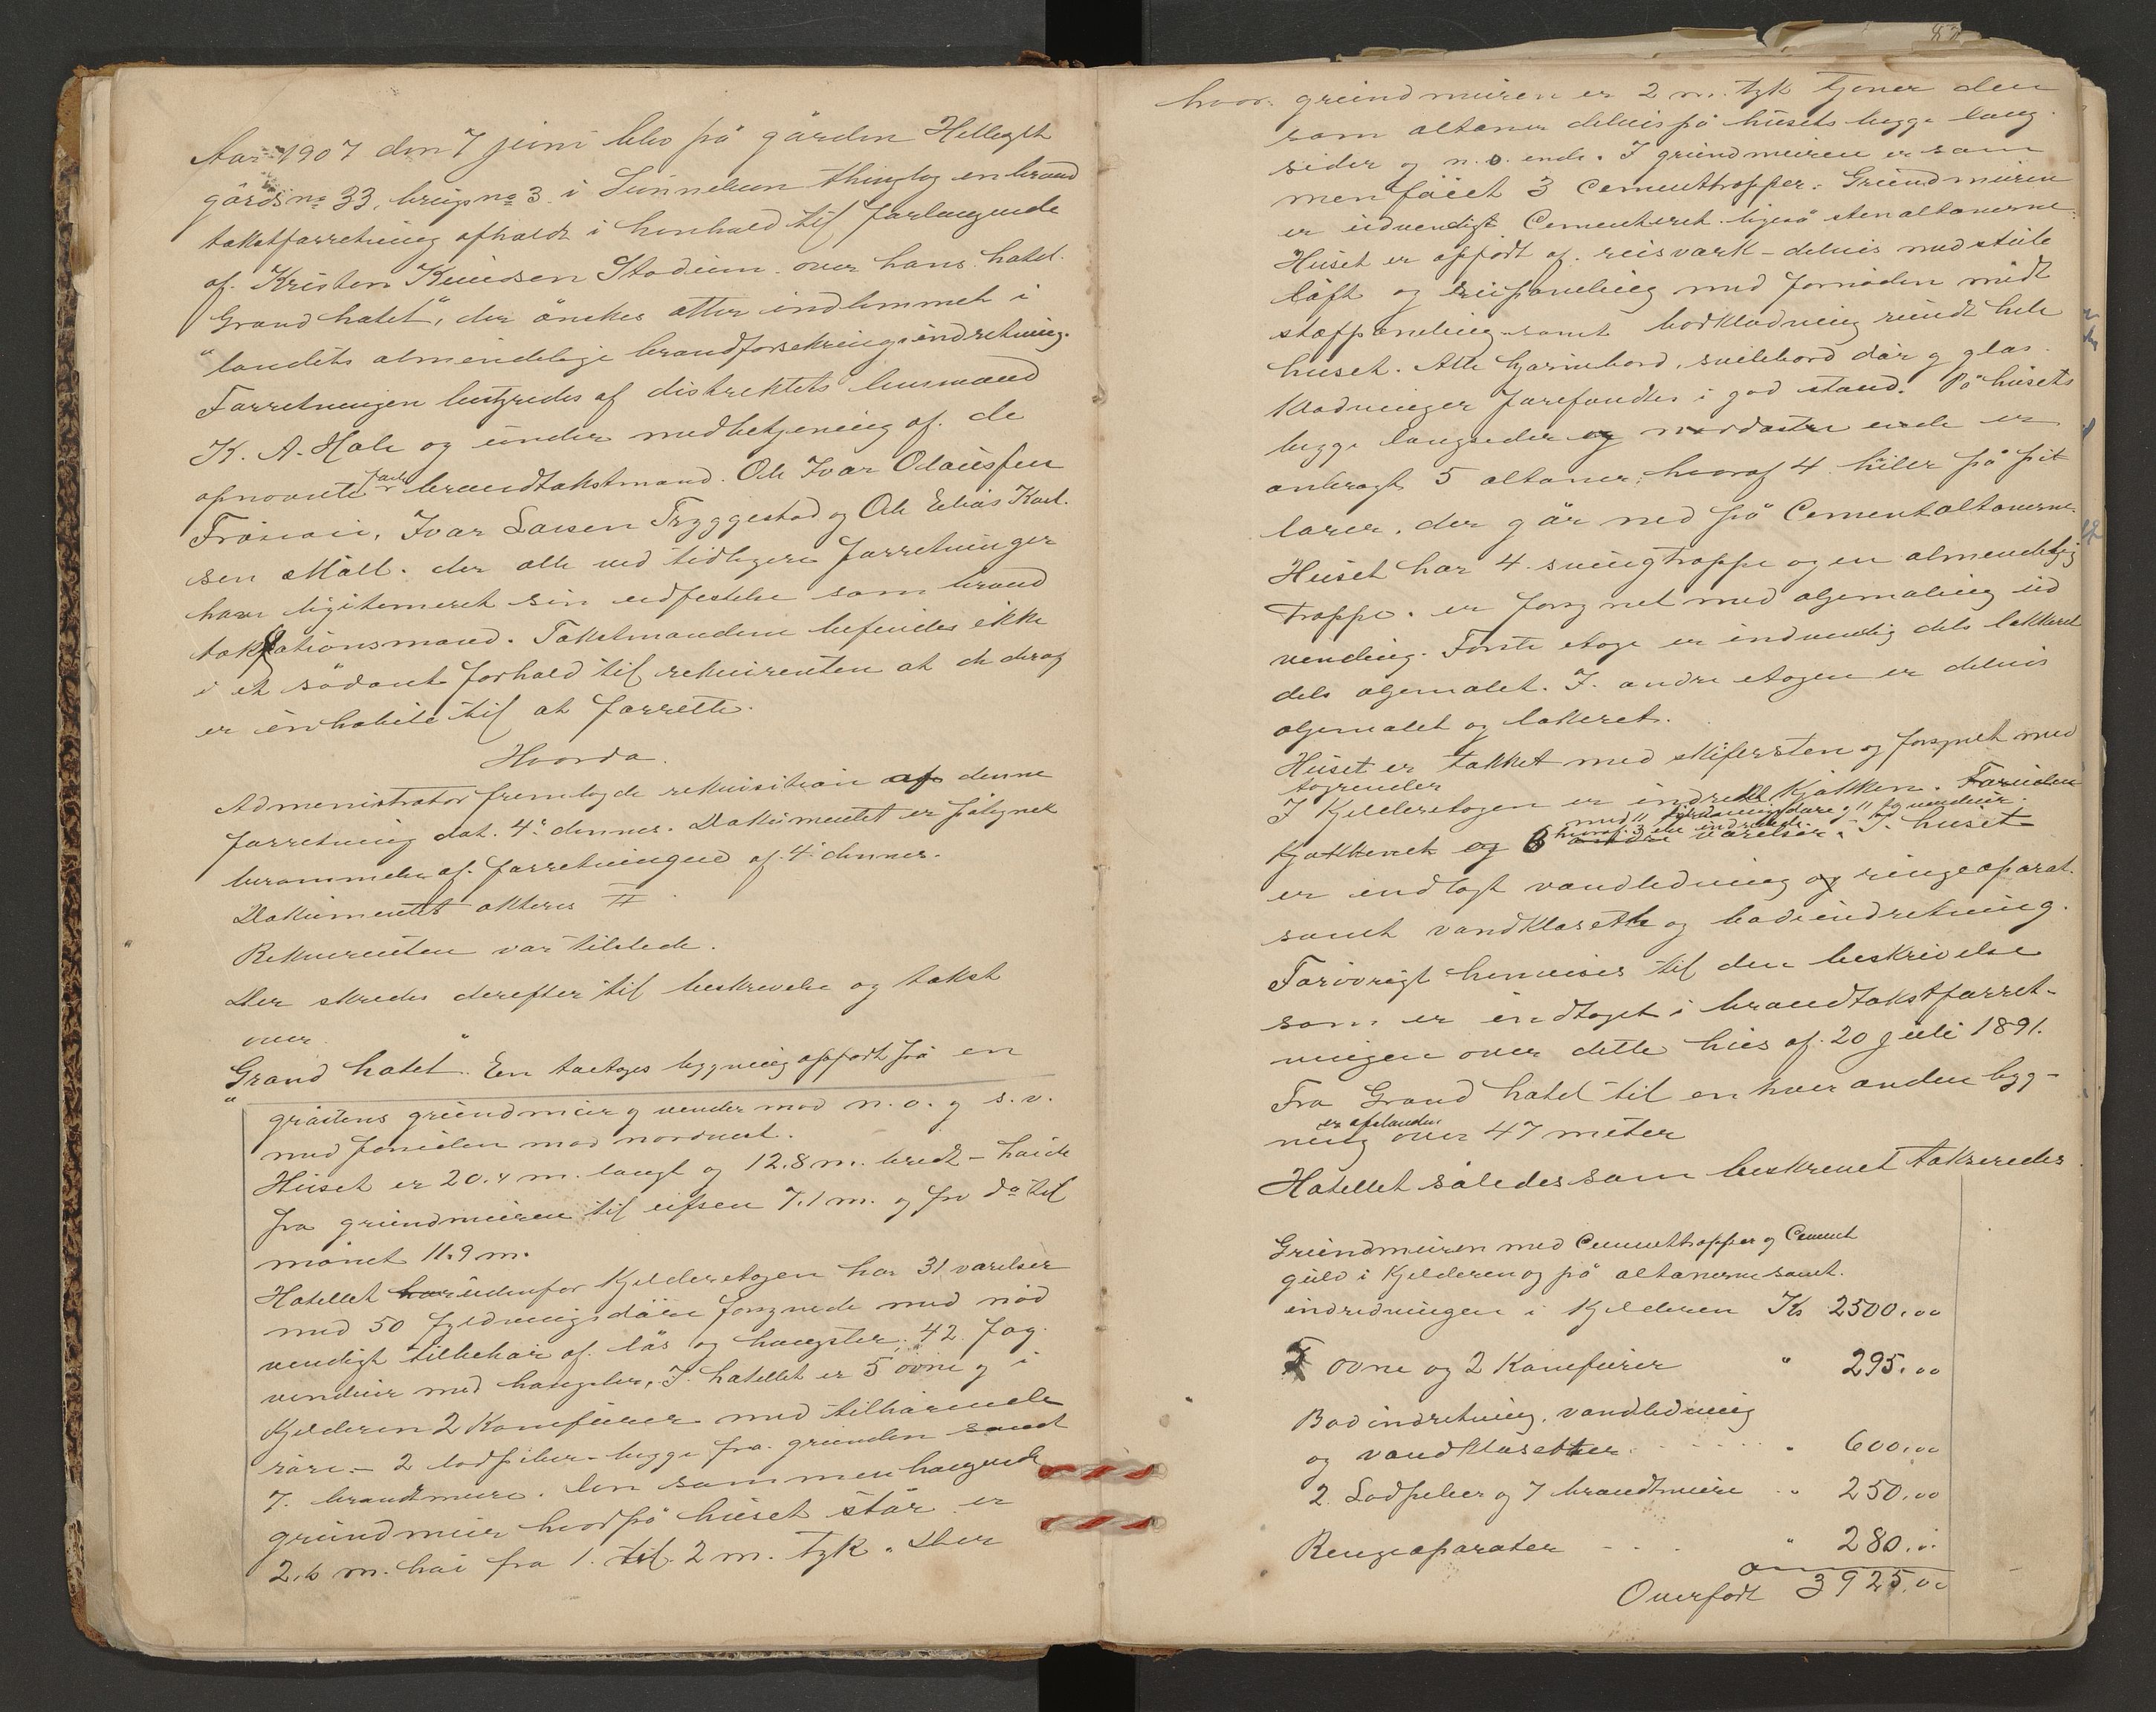 Aar 1907 den 7 juni blev på gården Hellesylt
gårdsno 33, brugsno 3 i Sunnelven thinglag en brand
takstforretning afholdt i henhold til forlangende
af Kristen Knudsen Stadeim over hans hotel
"Grand hotel", der önskes atter indlemmet i
landets almindelige brandforsekringsindretning.
Forretningen bestyredes af distriktets lensmand
K. A. Hole og under medbetjening af de
opnævnte faste brandtakstmænd Ole Ivar Olaussen
Frönæi, Ivar Larsen Tryggestad og Ole Elias Karl
sen Möll. der alle ved tidligere forretninger
have legitemeret sin udfestelse som brand
takstationsmænd. Takstmændene befindes ikke
i et sådant forhold til rekvirenten at de derog
er inhabile til at forrette.
Hvorda.
Administrator fremlagde rekvisition af denne
forretning dat. 4. dennes. Dokumentet er påtegnet
berammelse af forretningen af 4 dennes.
Dokumentet akteres II
Rekvirenten var tilstede.
Der skredes derefter til beskrivelse og takst
over
"Grand hotel". En toetages bygning opfört på en
gråstens grundmur og vender mod n. o. og s. v.
med forsiden mod nordvest.
Huset er 20.4 m. langt og 12.8 m. bredt - höide
fra grundmuren til ufsen 7.1 m. og fra do til
mönet 11.9 m.
Hotellet har udenfor Kjelderetagen har 31 værelser
med 50 fyldningsdöre forsynede med nöd
vendigt tilbehör af lås og hengsler, 42 fag
vinduer med hengsler. I hotellet er 5 ovne og i
Kjelderen 2 Komfurer med tilhörende
röre. - 2 lodpiber - begge fra grunden samt
7 brandmure. Den sammenhengende
grundmur hvorpå huset står er
2.6 m. höi fra 1. til 2 m. tyk. Der
hvor grundmuren er 2 m. tyk tjener den
som altaner delvis på husets begge lang
sider og n. ö. ende. I grundmuren er sam
menföiet 3 Cementtrapper. Grundmuren
er udvendigt Cementeret ligeså stenaltanerne.
Huset er opfört af reisværk - delvis med stub
loft og reispaneling med fornöden midt
stafpaneling samt bordklædning rundt hele
huset. Alle hjörnebord, svilebord dör og glas
klædninger forefandtes i god stand. På husets
begge langsider og nordöstre ende er
anbragt 5 altaner, hvoraf 4 hviler på pil
larer, der går ned på Cementaltanerne.
Huset har 4 svingtrappe og en almendelig
trappe. er forsynet med oljemaling ud
vendig. Förste etage er indvendig dels lakkeret
dels oljemalet. I andre etagen er delvis
oljemalet og lakeret.
Huset er tækket med skifersten og forsynet med
tagrender
I Kjelderetagen er indredt Kjökken. Foruden
med 11 fyldningsdöre og 11 fag vinduer.
hvoraf 3 ere indredede.
Kjökkenet og 8 andre værelser. I huset
er indlagt vandledning og ringeaparat.
samt vandklosette og badeindretning.
Forövrigt henvises til den beskrivelse
som er indtaget i brandtakstforret-
ningen over dette hus af 20 juli 1891.
Fra Grand hotel til enhver anden byg-
er afstanden
ning over 47 meter
Hotellet således som beskrevet takseredes
Grundmuren med Cementtrapper og Cement
gulv i Kjelderen og på altanerne samt
indredningen i Kjelderen Kr 2500.00
5 ovne og 2 Komfurer " 295.00
Bad indretning, vandledning
og vandklosetter " 600.00
2 Lodpiber og 7 brandtmure " 250.00
Ringeaparater " 280.00
Overfört 3925.00